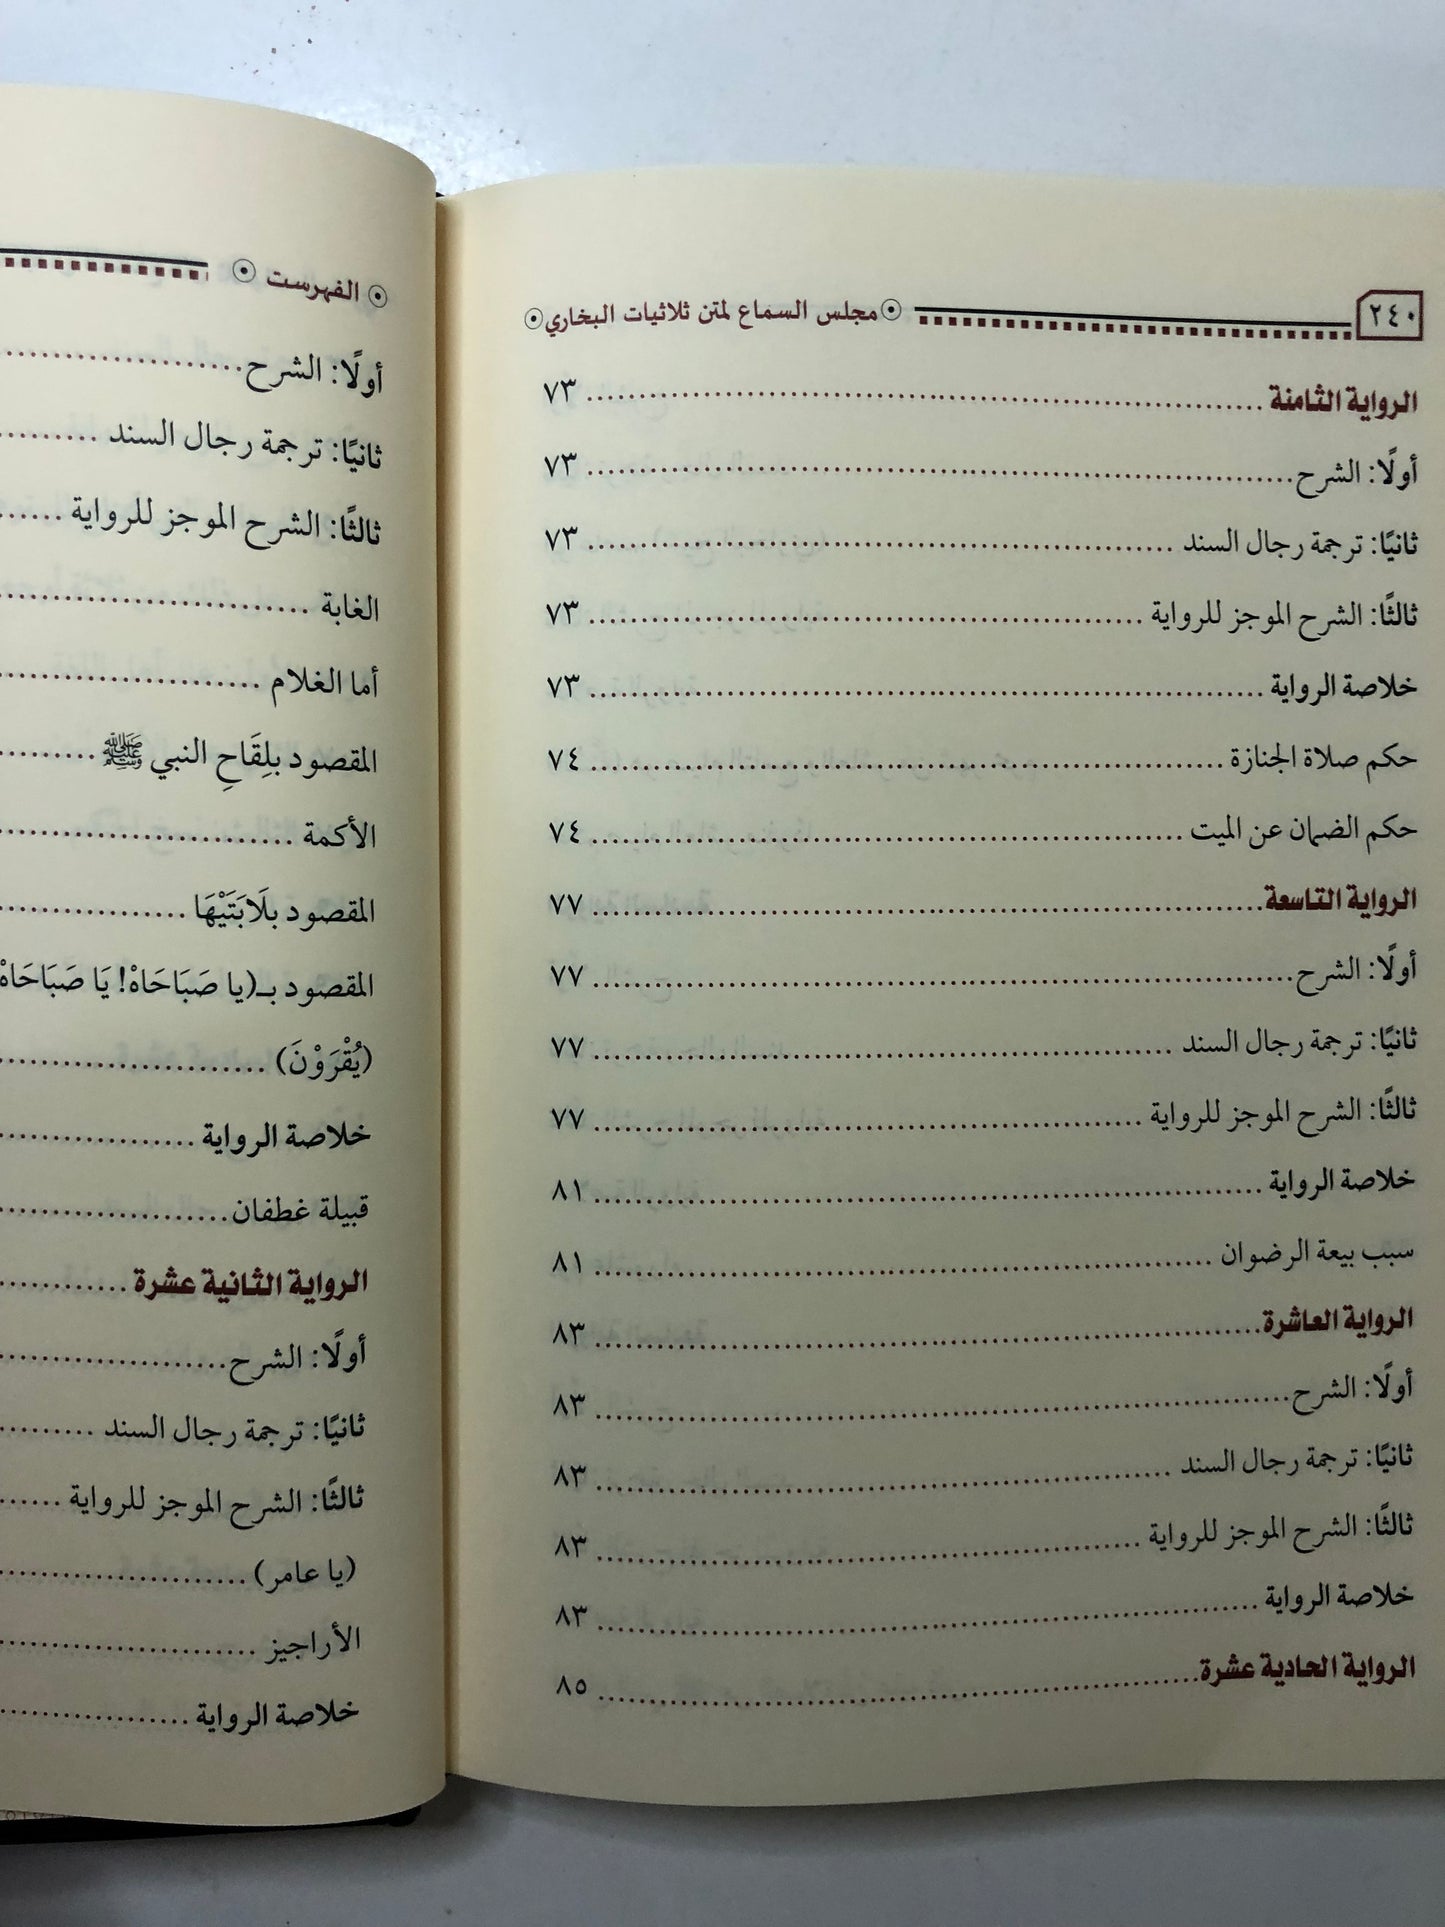 ٢٤٠ مجلس السماع لمتن ثلاثيات البخاري
الرواية الثامنة ........ ٧٣
أولًا: الشرح ........ ٧٣
ثانيًا: ترجمة رجال السند ........ ٧٣
ثالثًا: الشرح الموجز للرواية ........ ٧٣
خلاصة الرواية ........ ٧٣
حكم صلاة الجنازة ........ ٧٤
حكم الضمان عن الميت ........ ٧٤
الرواية التاسعة ........ ٧٧
أولًا: الشرح ........ ٧٧
ثانيًا: ترجمة رجال السند ........ ٧٧
ثالثًا: الشرح الموجز للرواية ........ ٧٧
خلاصة الرواية ........ ٨١
سبب بيعة الرضوان ........ ٨١
الرواية العاشرة ........ ٨٣
أولًا: الشرح ........ ٨٣
ثانيًا: ترجمة رجال السند ........ ٨٣
ثالثًا: الشرح الموجز للرواية ........ ٨٣
خلاصة الرواية ........ ٨٣
الرواية الحادية عشرة ........ ٨٥
الفهرست
أولًا: الشرح ........
ثانيًا: ترجمة رجال السند ........
ثالثًا: الشرح الموجز للرواية ........
الغابة ........
أما الغلام ........
المقصود بلِقَاحِ النبي ﷺ ........
الأكمة ........
المقصود بلَابَتَيْهَا ........
المقصود بـ(يا صَبَاحَاهْ! يَا صَبَاحَاهْ
(يُقْرَوْنَ) ........
خلاصة الرواية ........
قبيلة غطفان ........
الرواية الثانية عشرة ........
أولًا: الشرح ........
ثانيًا: ترجمة رجال السند ........
ثالثًا: الشرح الموجز للرواية ........
(يا عامر) ........
الأراجيز ........
خلاصة الرواية ........